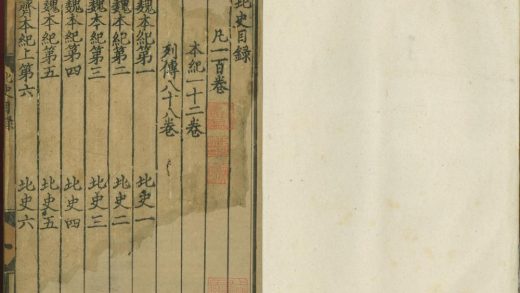 北史目錄
凡一百卷
本紀一十二卷
列傳八十八卷
魏本紀第一 北史一
魏本紀第二 北史二
魏本紀第三 北史三
魏本紀第四 北史四
魏本紀第五 北史五
齊本紀上第六 北史六
北史目錄